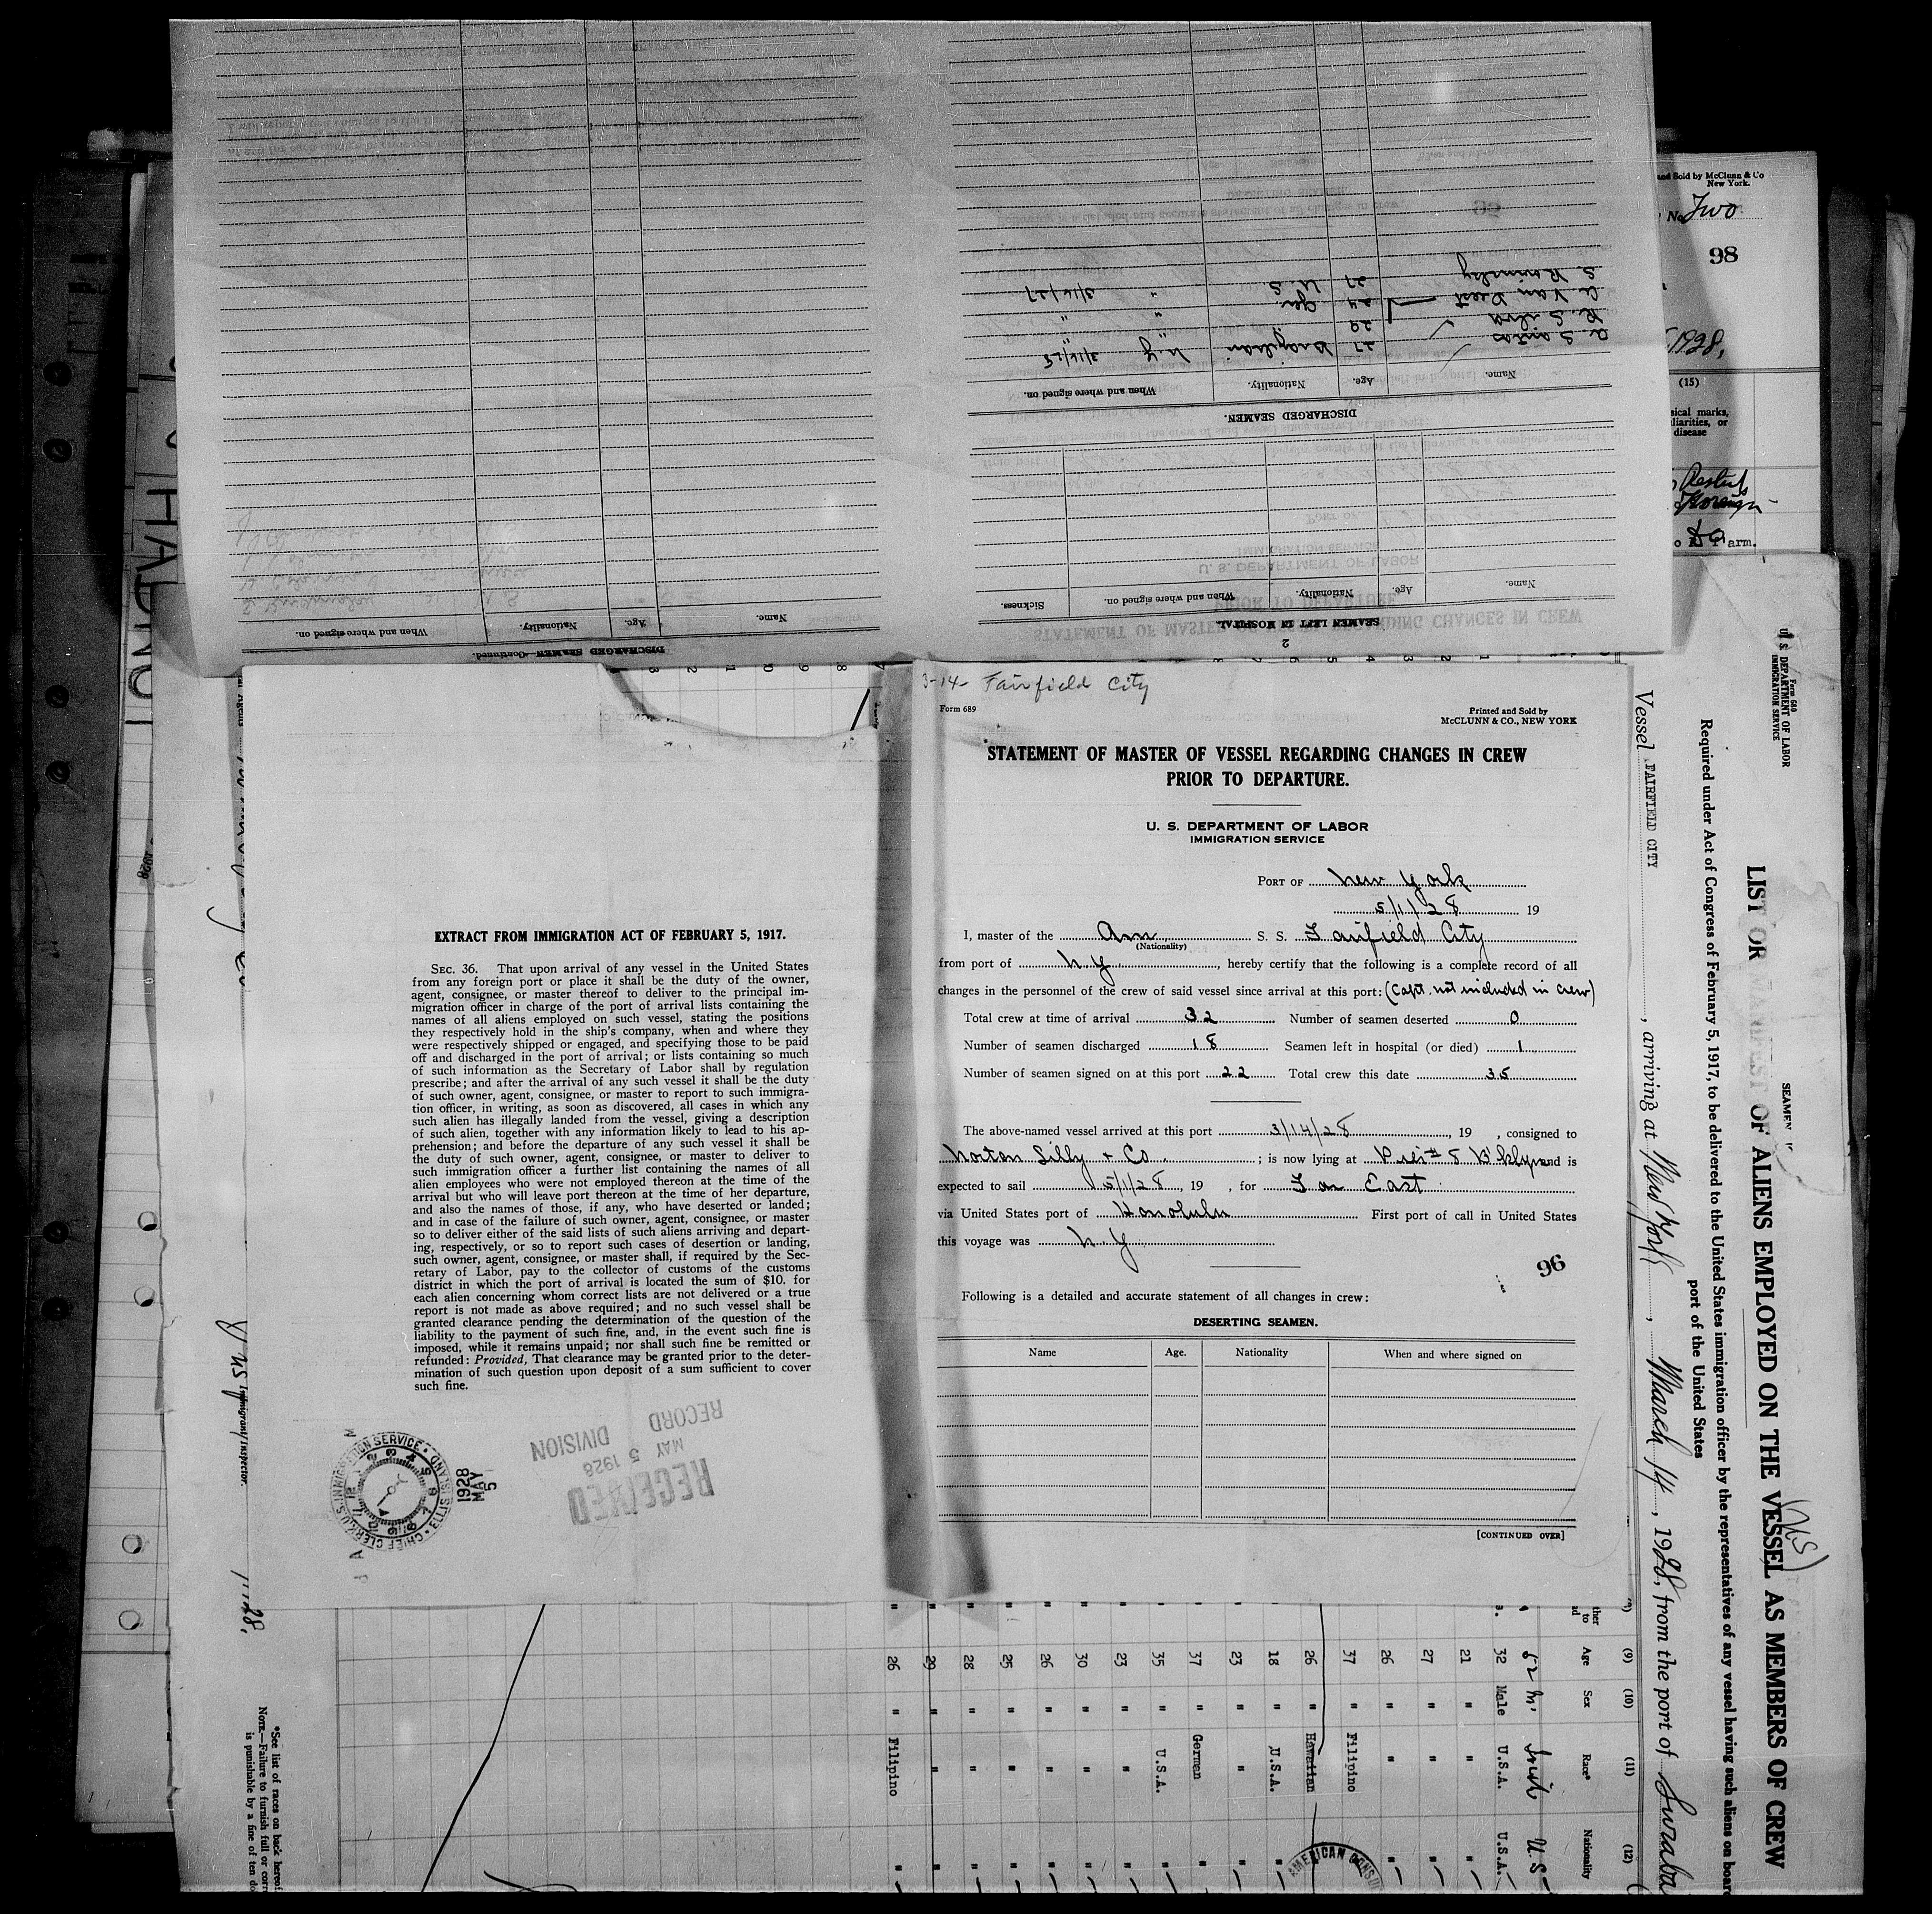 3-14- Fairfield City
Form 689
Printed and Sold by
McCLUNN & CO., NEW YORK
STATEMENT OF MASTER OF VESSEL REGARDING CHANGES IN CREW
PRIOR TO DEPARTURE.
U. S. DEPARTMENT OF LABOR
IMMIGRATION SERVICE
PORT OF New York
5/1/28 19
I, master of the Am S. S. Fairfield City
(Nationality)
from port of N Y, hereby certify that the following is a complete record of all
changes in the personnel of the crew of said vessel since arrival at this port: (Capt. not included in crew)
Total crew at time of arrival 32 Number of seamen deserted 0
Number of seamen discharged 18 Seamen left in hospital (or died) 1
Number of seamen signed on at this port 22 Total crew this date 35
The above-named vessel arrived at this port 3/14/28, 19 , consigned to
Norton Lilly & Co. ; is now lying at Pier # 5 B'klyn and is
expected to sail 5/1/28, 19 , for Far East
via United States port of Honolulu First port of call in United States
this voyage was N Y
96
Following is a detailed and accurate statement of all changes in crew:
DESERTING SEAMEN.
Name Age. Nationality When and where signed on
[CONTINUED OVER]
EXTRACT FROM IMMIGRATION ACT OF FEBRUARY 5, 1917.
SEC. 36. That upon arrival of any vessel in the United States
from any foreign port or place it shall be the duty of the owner,
agent, consignee, or master thereof to deliver to the principal im-
migration officer in charge of the port of arrival lists containing the
names of all aliens employed on such vessel, stating the positions
they respectively hold in the ship's company, when and where they
were respectively shipped or engaged, and specifying those to be paid
off and discharged in the port of arrival; or lists containing so much
of such information as the Secretary of Labor shall by regulation
prescribe; and after the arrival of any such vessel it shall be the duty
of such owner, agent, consignee, or master to report to such immigra-
tion officer, in writing, as soon as discovered, all cases in which any
such alien has illegally landed from the vessel, giving a description
of such alien, together with any information likely to lead to his ap-
prehension; and before the departure of any such vessel it shall be
the duty of such owner, agent, consignee, or master to deliver to
such immigration officer a further list containing the names of all
alien employees who were not employed thereon at the time of the
arrival but who will leave port thereon at the time of her departure,
and also the names of those, if any, who have deserted or landed;
and in case of the failure of such owner, agent, consignee, or master
so to deliver either of the said lists of such aliens arriving and depart-
ing, respectively, or so to report such cases of desertion or landing,
such owner, agent, consignee, or master shall, if required by the Sec-
retary of Labor, pay to the collector of customs of the customs
district in which the port of arrival is located the sum of $10. for
each alien concerning whom correct lists are not delivered or a true
report is not made as above required; and no such vessel shall be
granted clearance pending the determination of the question of the
liability to the payment of such fine, and, in the event such fine is
imposed, while it remains unpaid; nor shall such fine be remitted or
refunded: Provided, That clearance may be granted prior to the deter-
mination of such question upon deposit of a sum sufficient to cover
such fine.
RECEIVED
MAY 5 1928
RECORD DIVISION
MAY 5 1928
CHIEF CLERK, U.S. IMMIGRATION SERVICE • ELLIS ISLAND
2
SEAMEN LEFT IN HOSPITAL
Name. Age. Nationality. When and where signed on. Sickness.
DISCHARGED SEAMEN.
Name. Age. Nationality. When and where signed on.
A. Santos 27 Brazilian N.Y 3/16/28
R. Silva 29 " "
C. Van Deest 24 Ger " "
S. 27 U. S " 3/16/27
DISCHARGED SEAMEN—Continued.
Name. Age. Nationality. When and where signed on.
and Sold by McClunn & Co
New York.
No. Two
98
1928,
(15)
sical marks,
liarities, or
disease
arm.
Form 680
U. S. DEPARTMENT OF LABOR
IMMIGRATION SERVICE
SEAMEN
LIST OR MANIFEST OF ALIENS EMPLOYED ON THE VESSEL AS MEMBERS OF CREW
(US)
Required under Act of Congress of February 5, 1917, to be delivered to the United States immigration officer by the representatives of any vessel having such aliens on board
port of the United States
Vessel FAIRFIELD CITY, arriving at New York, March 14, 1928, from the port of Suraba
(9) (10) (11) (12)
Age Sex Race* Nationality
52 M. Irish U.S
32 Male U.S.A. U.S.A.
21 " " "
27 " " "
26 " " "
37 " Filipino "
26 " Hawaiian "
18 " U.S.A. "
23 " " "
37 " German "
35 " U.S.A. "
23 " " "
30 " " "
26 " " "
25 " " "
28 " " "
29 " " "
26 " Filipino "
AMERICAN CONSUL
Immigrant Inspector.
*See list of races on back hereof
NOTE.—Failure to furnish full or corr
is punishable by a fine of ten do